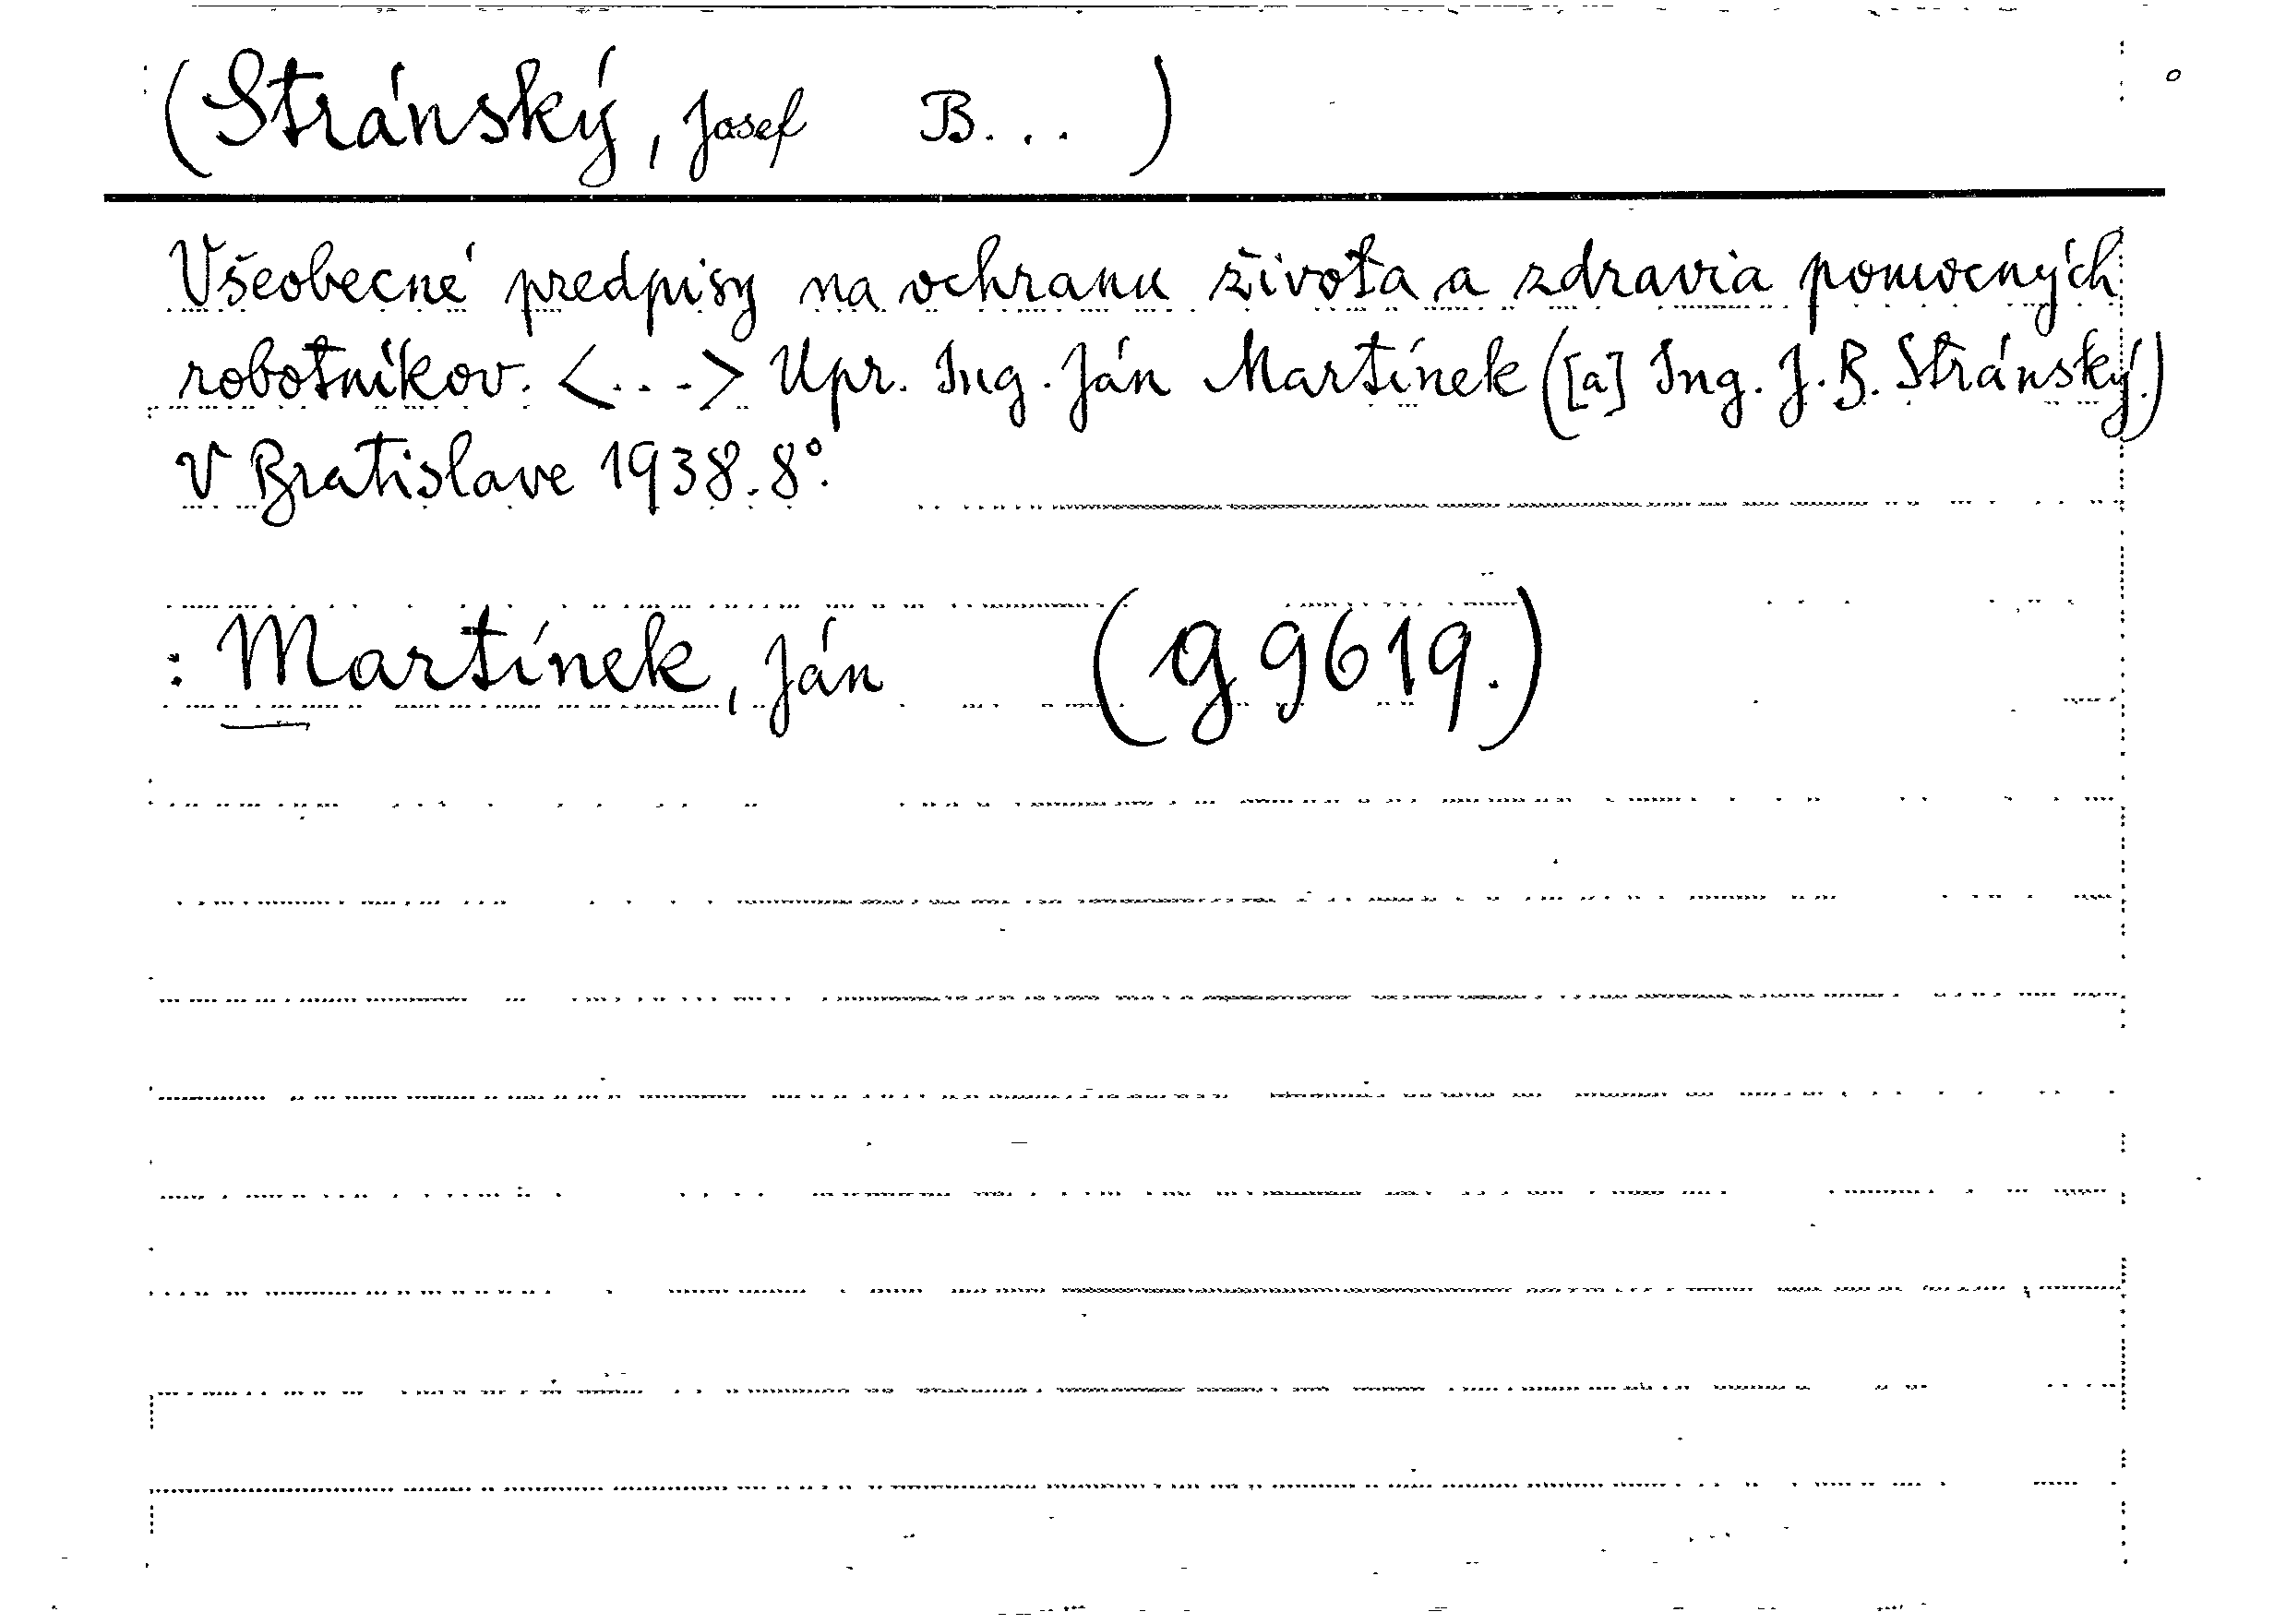 (Stránský, Josef B... )
Všeobecné predpisy na ochranu života a zdravia pomocných
robotníkov. <...> Upr. Ing. Ján Martínek ([a] Ing. J. B. Stránský.)
V Bratislave 1938. 8°.
: Martínek, Ján (g 9619.)